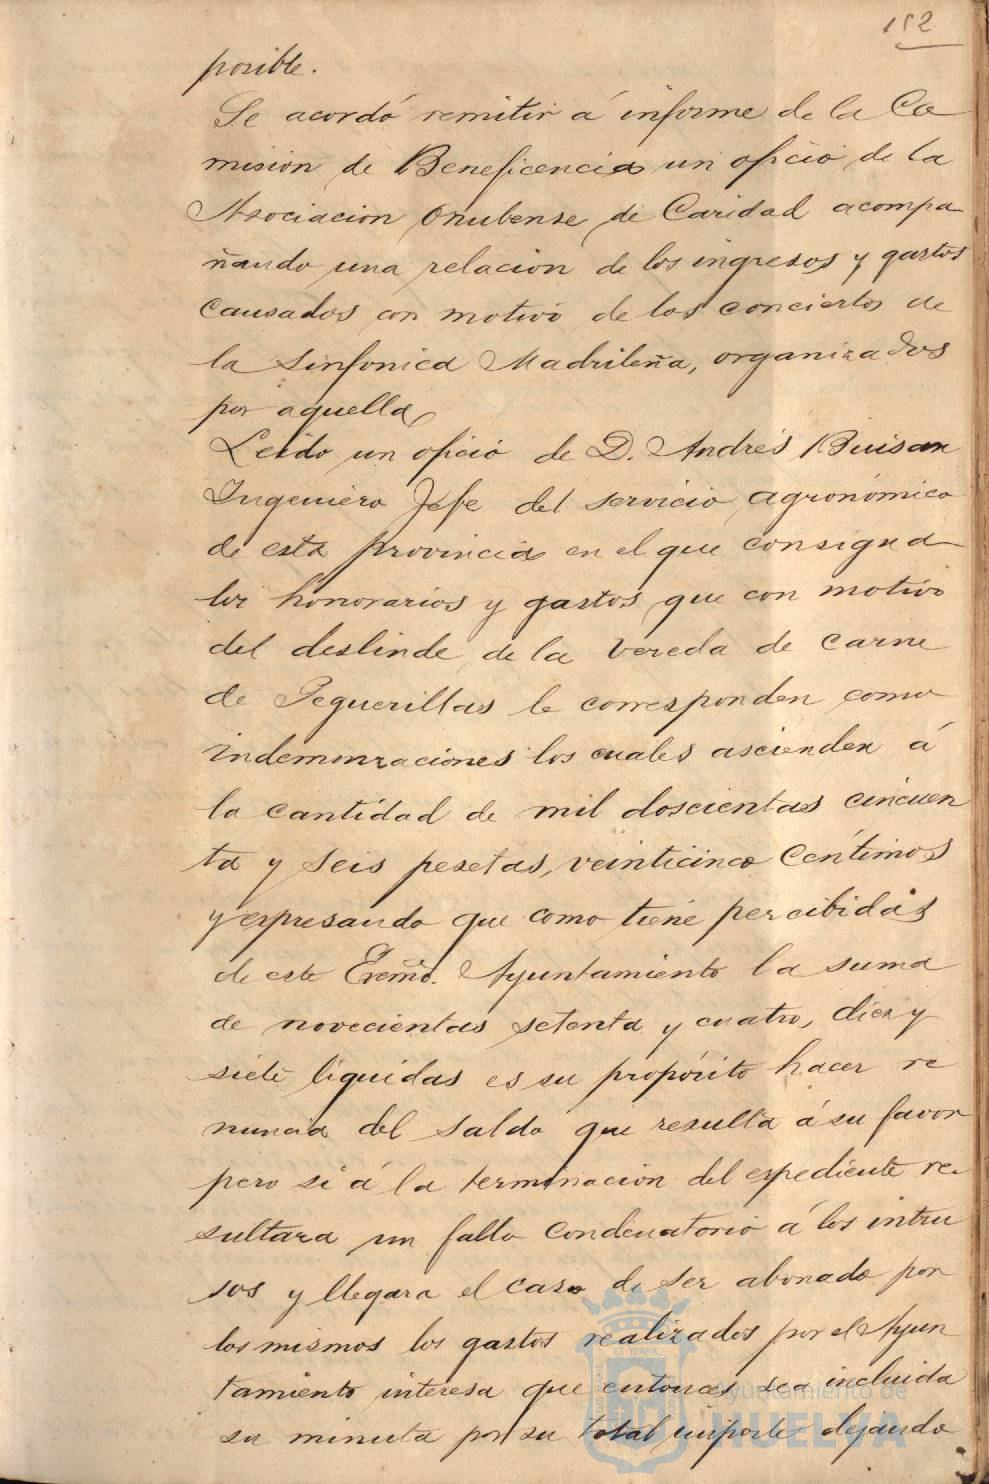 152
posible.
Se acordó remitir á informe de la Co
mision de Beneficencia un oficio de la
Asociacion Onubense de Caridad acompa
ñando una relacion de los ingresos y gastos
causados con motivo de los conciertos de
la Sinfonica Madrileña, organizados
por aquella,
Leido un oficio de D. Andrés Buisan
Ingeniero Jefe del servicio agronómico
de esta provincia en el que consigna
los honorarios y gastos que con motivo
del deslinde de la vereda de carne
de Peguerillas le corresponden como
indemnizaciones los cuales ascienden á
la cantidad de mil doscientas cincuen
ta y seis pesetas, veinticinco Centimos
y espresando que como tiene percibidas
de este Excmo. Ayuntamiento la suma
de novecientas setenta y cuatro, diez y
siete liquidas es su propósito hacer re
nuncia del saldo que resulta á su favor
pero si á la terminacion del espediente re-
sultara un fallo condenatorio á los intru
sos y llegara el caso de ser abonado por
los mismos los gastos realizados por el Ayun
tamiento interesa que entonces sea incluida
su minuta por su total importe dejando
Ayuntamiento de
HUELVA